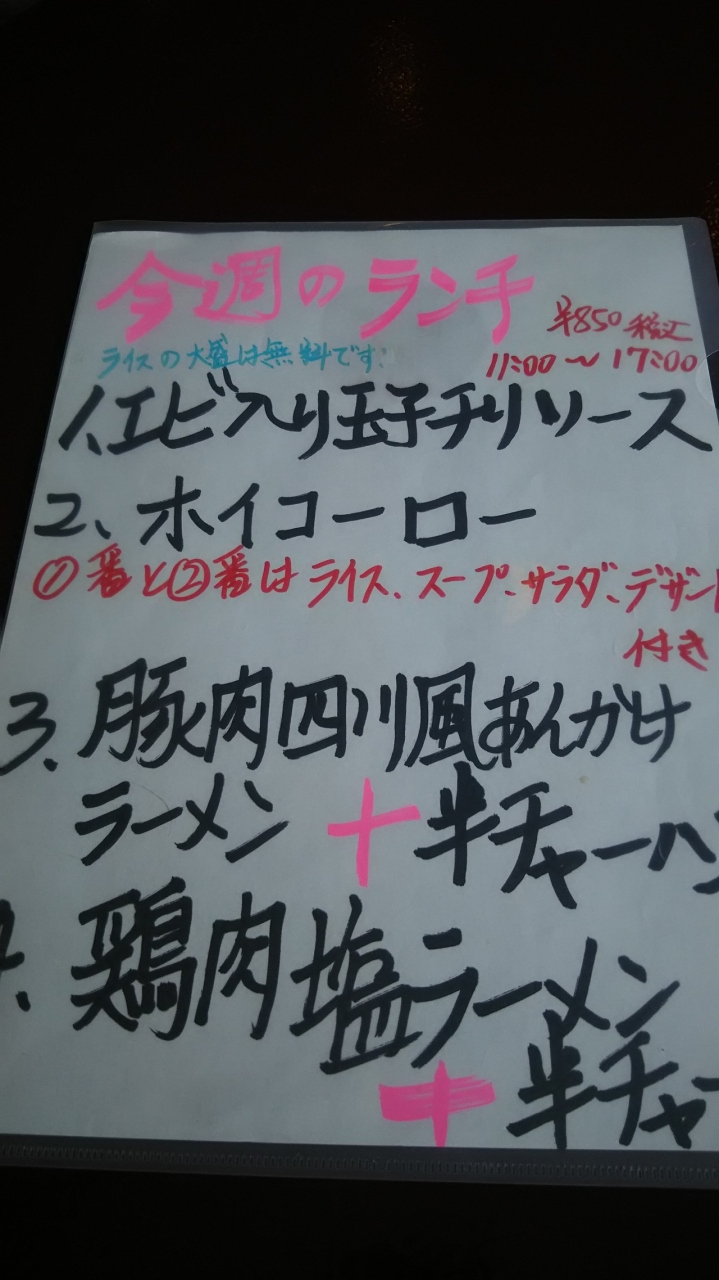 今週のランチ
¥850税込
ライスの大盛は無料です!
11:00〜17:00
1、エビ入り玉子チリソース
2、ホイコーロー
①番と②番はライス、スープ、サラダ、デザート
付き
3、豚肉四川風あんかけ
ラーメン+半チャーハン
4、鶏肉塩ラーメン
+半チャー